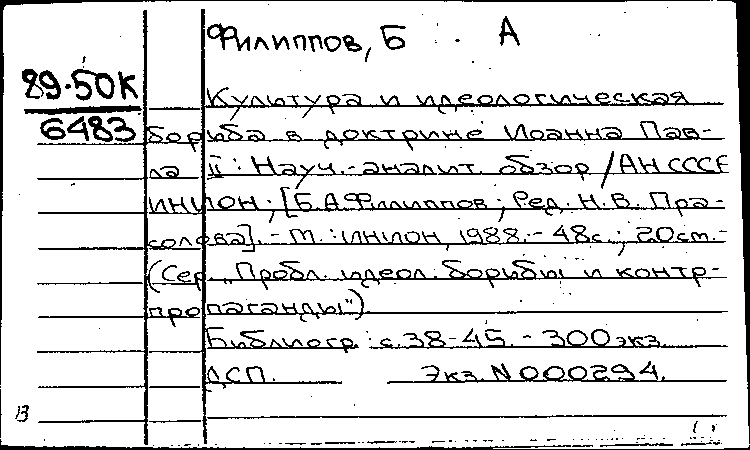 Филиппов, Б. А
89-50К
6483
Культура и идеологическая
борьба в доктрине Иоанна Пав-
ла II : Науч.-аналит. обзор / АН СССР
ИНИОН ; [Б.А.Филиппов ; Ред. Н.В. Пра-
солова]. - М. : ИНИОН, 1988. - 48с. ; 20см. -
(Сер. „Пробл. идеол. борьбы и контр-
пропаганды")
Библиогр : с.38-45. - 300экз.
ДСП. Экз. N 000294.
13